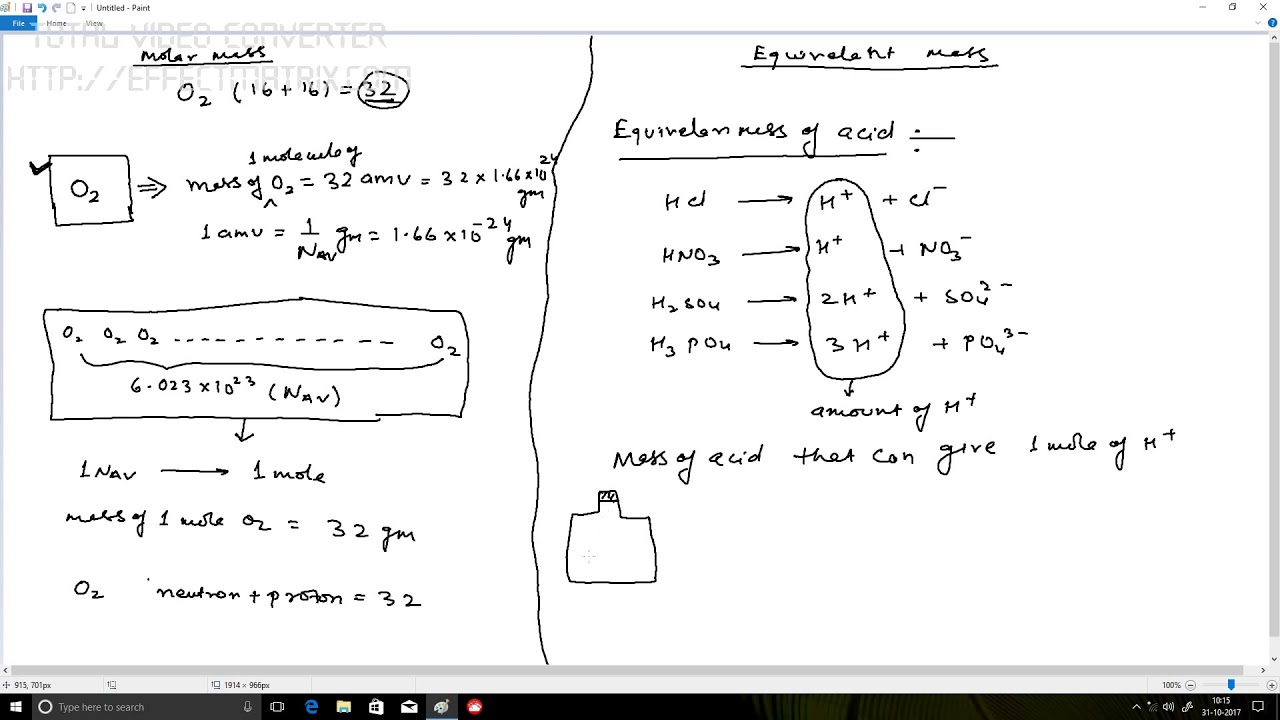 Untitled - Paint
File Home View
TOTAL VIDEO CONVERTER
HTTP://EFFECTMATRIX.COM
Molar mass
O2 (16 + 16) = 32
O2
1 molecule of
mass of O2 = 32 amu = 32 × 1.66 × 10^24 gm
1 amu = 1/NAV gm = 1.66 × 10^-24 gm
O2 O2 O2 ------------ O2
6.023 × 10^23 (NAV)
1 NAV → 1 mole
mass of 1 mole O2 = 32 gm
O2 neutron + proton = 32
Equivalent mass
Equivalen mass of acid :
HCl → H+ + Cl-
HNO3 → H+ + NO3-
H2SO4 → 2H+ + SO4^2-
H3PO4 → 3H+ + PO4^3-
amount of H+
Mass of acid that can give 1 mole of H+
915, 701px
1914 × 966px
100%
Type here to search
10:15
31-10-2017